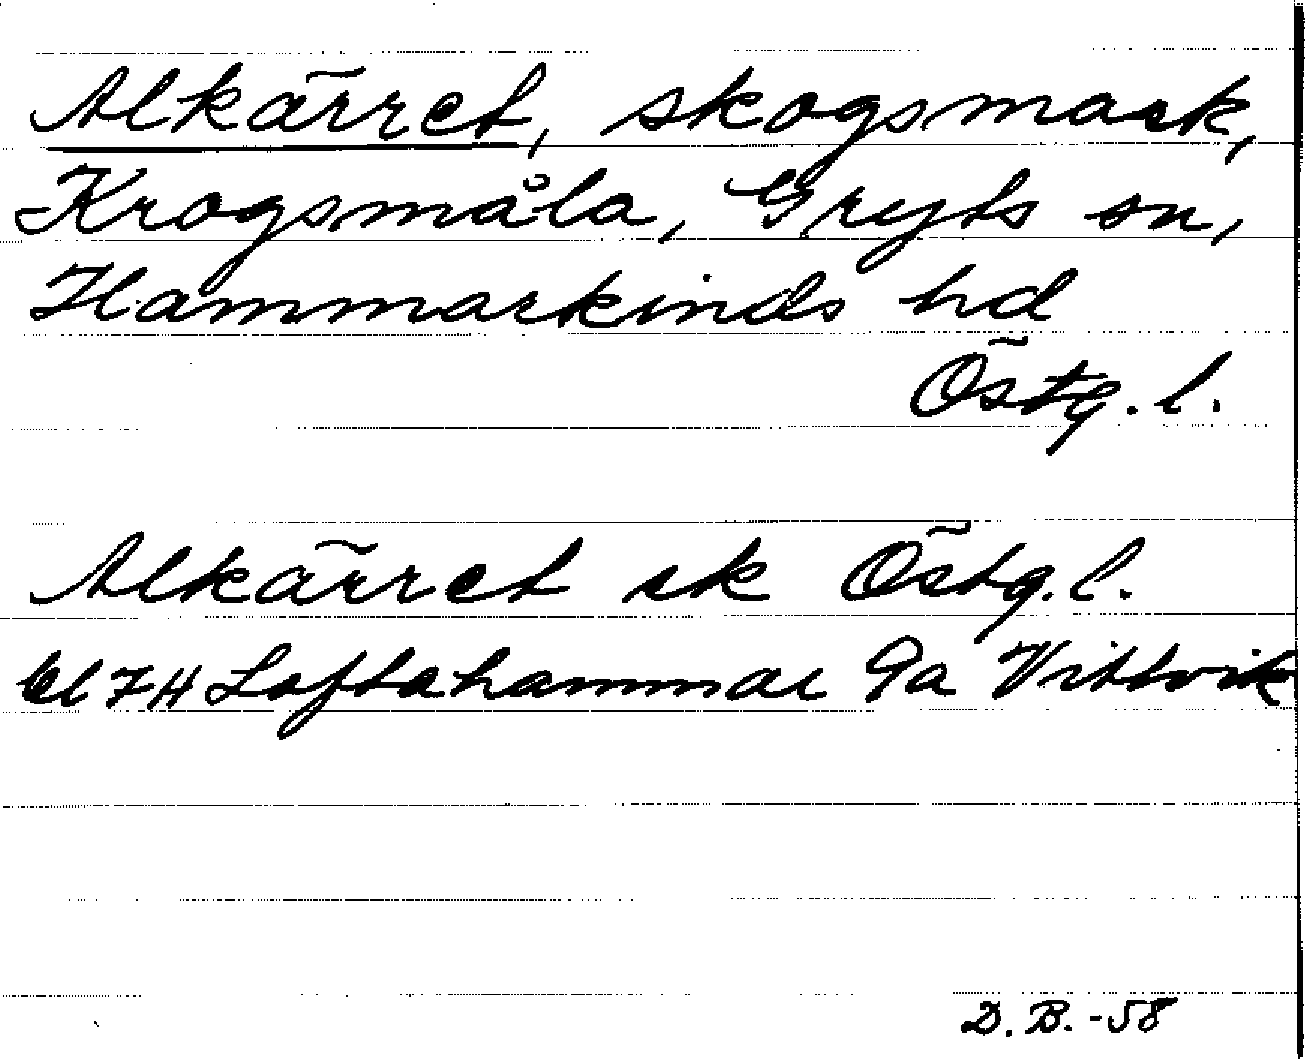 Alkärret, skogsmark,
Krogsmåla, Gryts sn,
Hammarkinds hd
Östg. l.
Alkärret sk Östg. l.
Bl 7H Loftahammar 9a Vittvik
D. B. -58